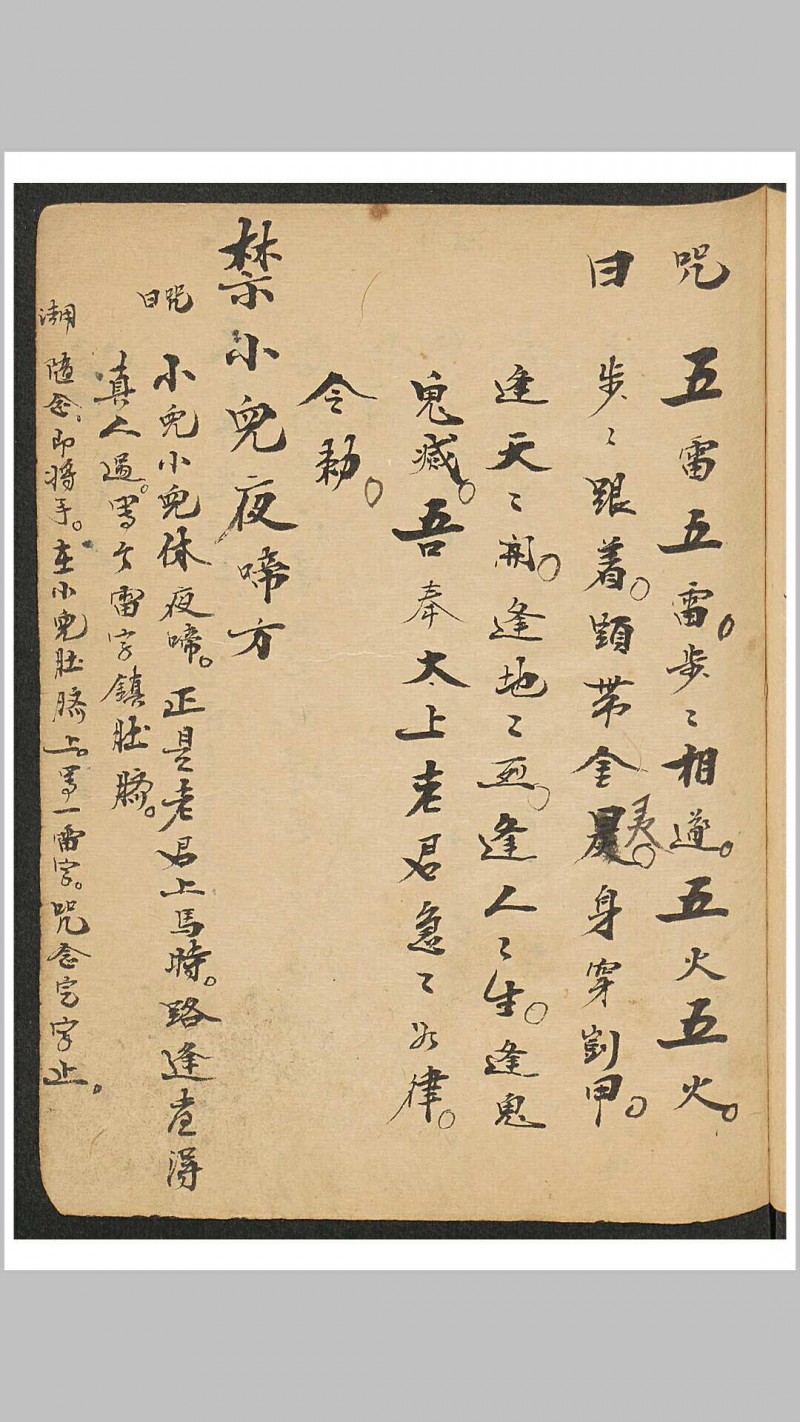 咒 五雷五雷。步〻相遵。五火五火。
曰 步〻跟着。頭带金晃。身穿劉甲。
逢天〻開。逢地〻烈。逢人〻生。逢鬼
鬼滅。吾奉太上老君急〻如律。
令勅。
禁小兒夜啼方
咒曰 小兒小兒休夜啼。正是老君上馬時。路逢
真人過。寫个雷字鎮肚臍。
隨念。即將手。在小兒肚臍上。寫一雷字。咒念完字止。